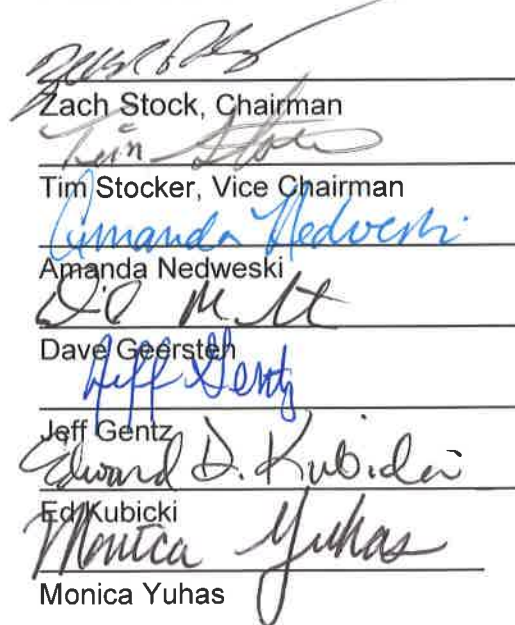 Zach Stock, Chairman
Tim Stocker
Tim Stocker, Vice Chairman
Amanda Nedweski
Amanda Nedweski
Dave Geersten
Jeff Gentz
Jeff Gentz
Edward D. Kubicki
Ed Kubicki
Monica Yuhas
Monica Yuhas